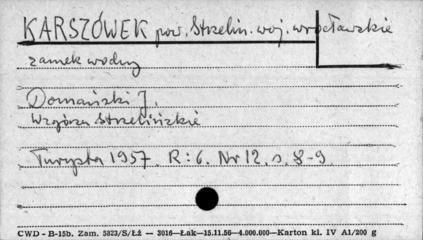 KARSZÓWEK pow. Strzelin. woj. wrocławskie
zamek wodny
Domański J.
Wzgórza Strzelińskie
Turysta 1957. R: 6. Nr 12. s. 8-9
CWD - B-15b. Zam. 5823/S/Łż — 3016—Łak—15.11.56—4.000.000—Karton kl. IV A1/200 g